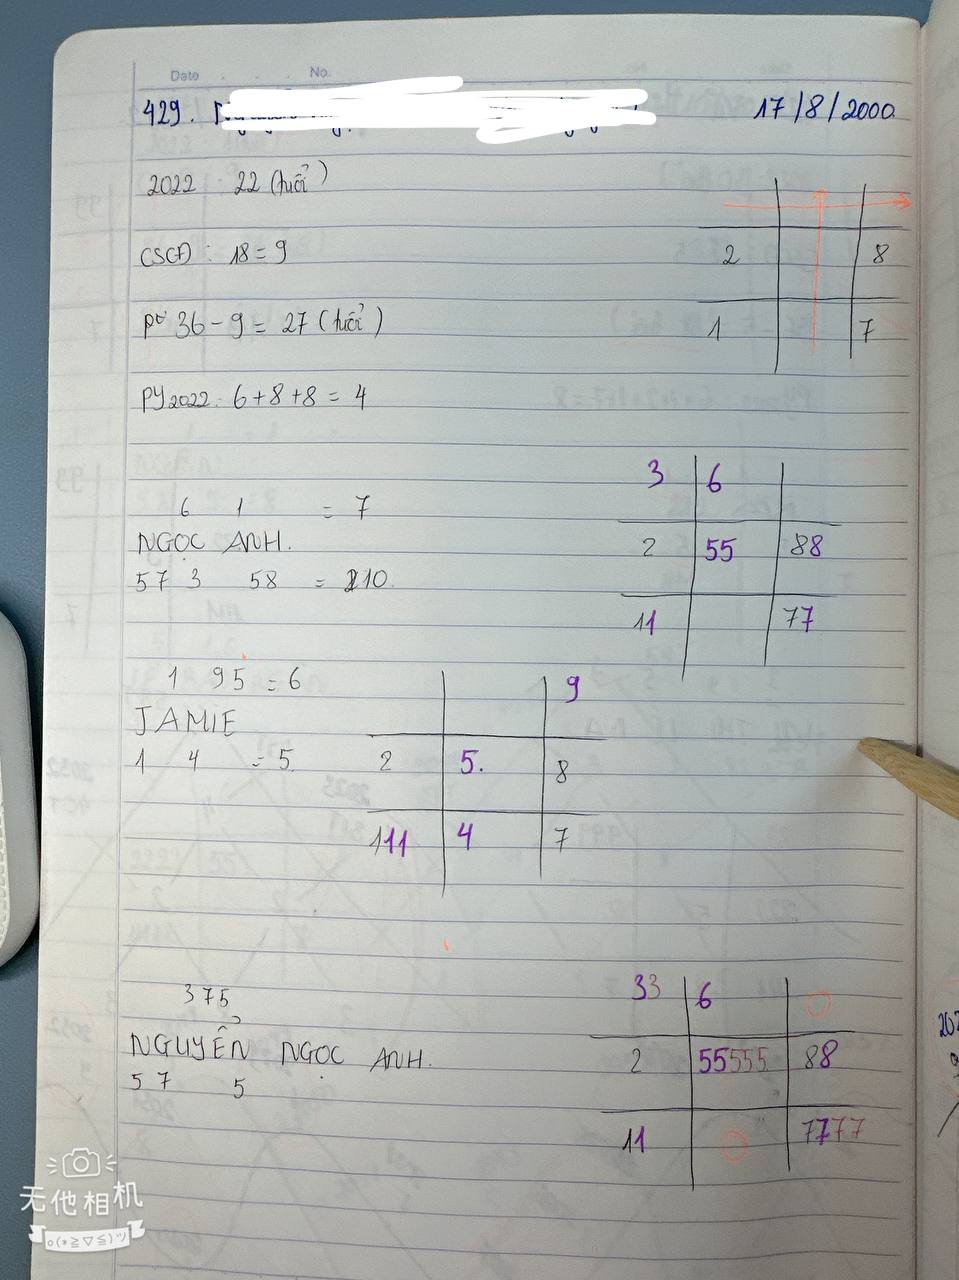 Date No.
429. 17/8/2000
2022 : 22 (tuổi)
CSCĐ : 18 = 9
36 - 9 = 27 (tuổi)
PY2022: 6+8+8 = 4
2 8
1 7
3 6
2 55 88
11 77
6 1 = 7
NGỌC ANH.
57 3 58 = 10.
1 95 = 6
JAMIE
1 4 = 5
9
2 5. 8
111 4 7
375
NGUYỄN NGỌC ANH.
57 5
33 6
2 55555 88
11 7777
无他相机